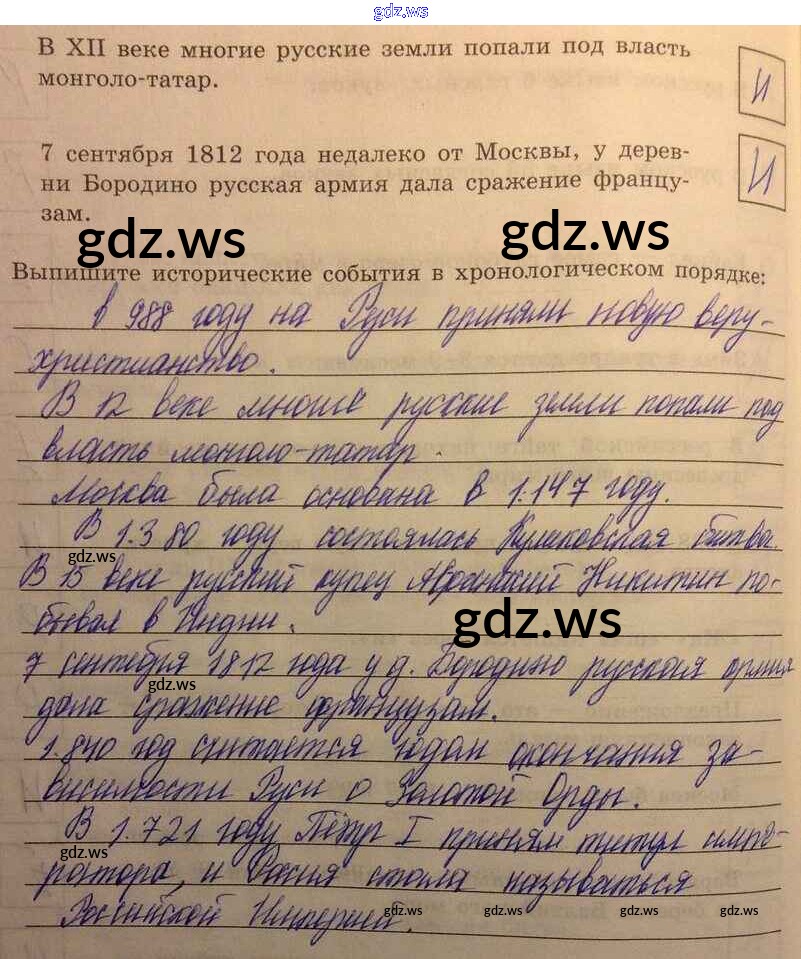 gdz.ws
В XII веке многие русские земли попали под власть
монголо-татар.
И
7 сентября 1812 года недалеко от Москвы, у дерев-
ни Бородино русская армия дала сражение францу-
зам.
И
gdz.ws
gdz.ws
Выпишите исторические события в хронологическом порядке:
в 988 году на Руси приняли новую веру-
христианство.
В 12 веке многие русские земли попали под
власть монголо-татар.
Москва была основана в 1.147 году.
В 1.380 году состоялась Куликовская битва.
gdz.ws
В 15 веке русский купец Афанасий Никитин по-
бывал в Индии.
gdz.ws
7 сентября 1812 года у д. Бородино русская армия
gdz.ws
дала сражение французам.
1.840 год считается годом окончания за-
висимости Руси о Золотой Орды.
В 1.721 году Пётр I принял титул импе-
gdz.ws
ратора, и Россия стала называться
Российской Империей.
gdz.ws
gdz.ws
gdz.ws
gdz.ws